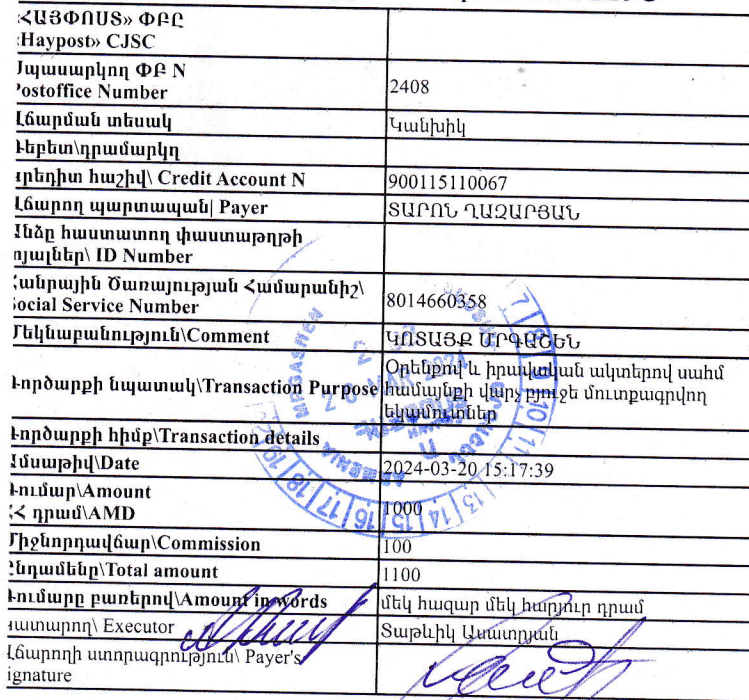 «ՀԱՅՓՈՍՏ» ՓԲԸ
Haypost» CJSC
Սպասարկող ՓԲ N
Postoffice Number
2408
Վճարման տեսակ
Կանխիկ
Դեբետ\դրամարկղ
րեդիտ հաշիվ\ Credit Account N
900115110067
Վճարող պարտապան| Payer
ՏԱՐՈՆ ՂԱԶԱՐՅԱՆ
Անձը հաստատող փաստաթղթի
տվյալներ\ ID Number
Հանրային Ծառայության Համարանիշ\
Social Service Number
8014660358
Մեկնաբանություն\Comment
ԿՈՏԱՅՔ ՄՐԳԱՇԵՆ
Գործարքի նպատակ\Transaction Purpose
Օրենքով և իրավական ակտերով սահմ
համայնքի վարչ բյուջե մուտքագրվող
եկամուտներ
Գործարքի հիմք\Transaction details
Ամսաթիվ\Date
2024-03-20 15:17:39
Գումար\Amount
ՀՀ դրամ\AMD
1000
Միջնորդավճար\Commission
100
Ընդամենը\Total amount
1100
Գումարը բառերով\Amount in words
մեկ հազար մեկ հարյուր դրամ
Կատարող\ Executor
Տաթևիկ Ասատրյան
Վճարողի ստորագրություն\ Payer's
ignature